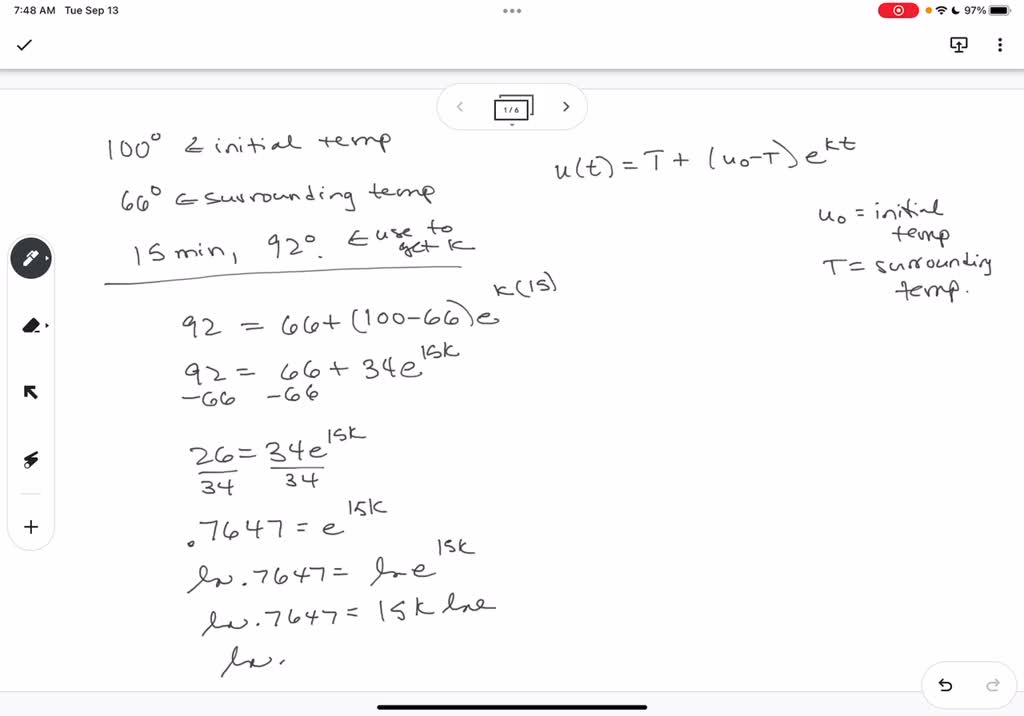 7:48 AM Tue Sep 13
97%
1/6
100° ← initial temp
66° ← surrounding temp
15 min, 92°. ← use to get k
u(t) = T + (u₀-T)e^kt
u₀ = initial
temp
T = surrounding
temp.
92 = 66 + (100-66)e^k(15)
92 = 66 + 34e^15k
-66 -66
26 = 34e^15k
34 34
.7647 = e^15k
ln .7647 = ln e^15k
ln .7647 = 15k lne
ln .